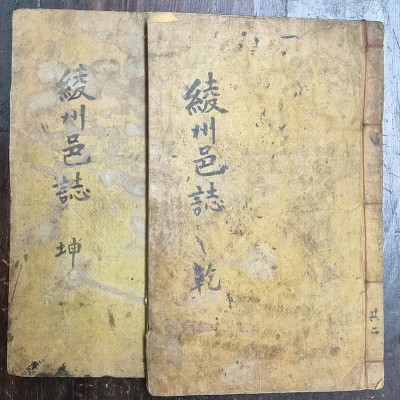 綾州邑誌 乾
共二
綾州邑誌 坤